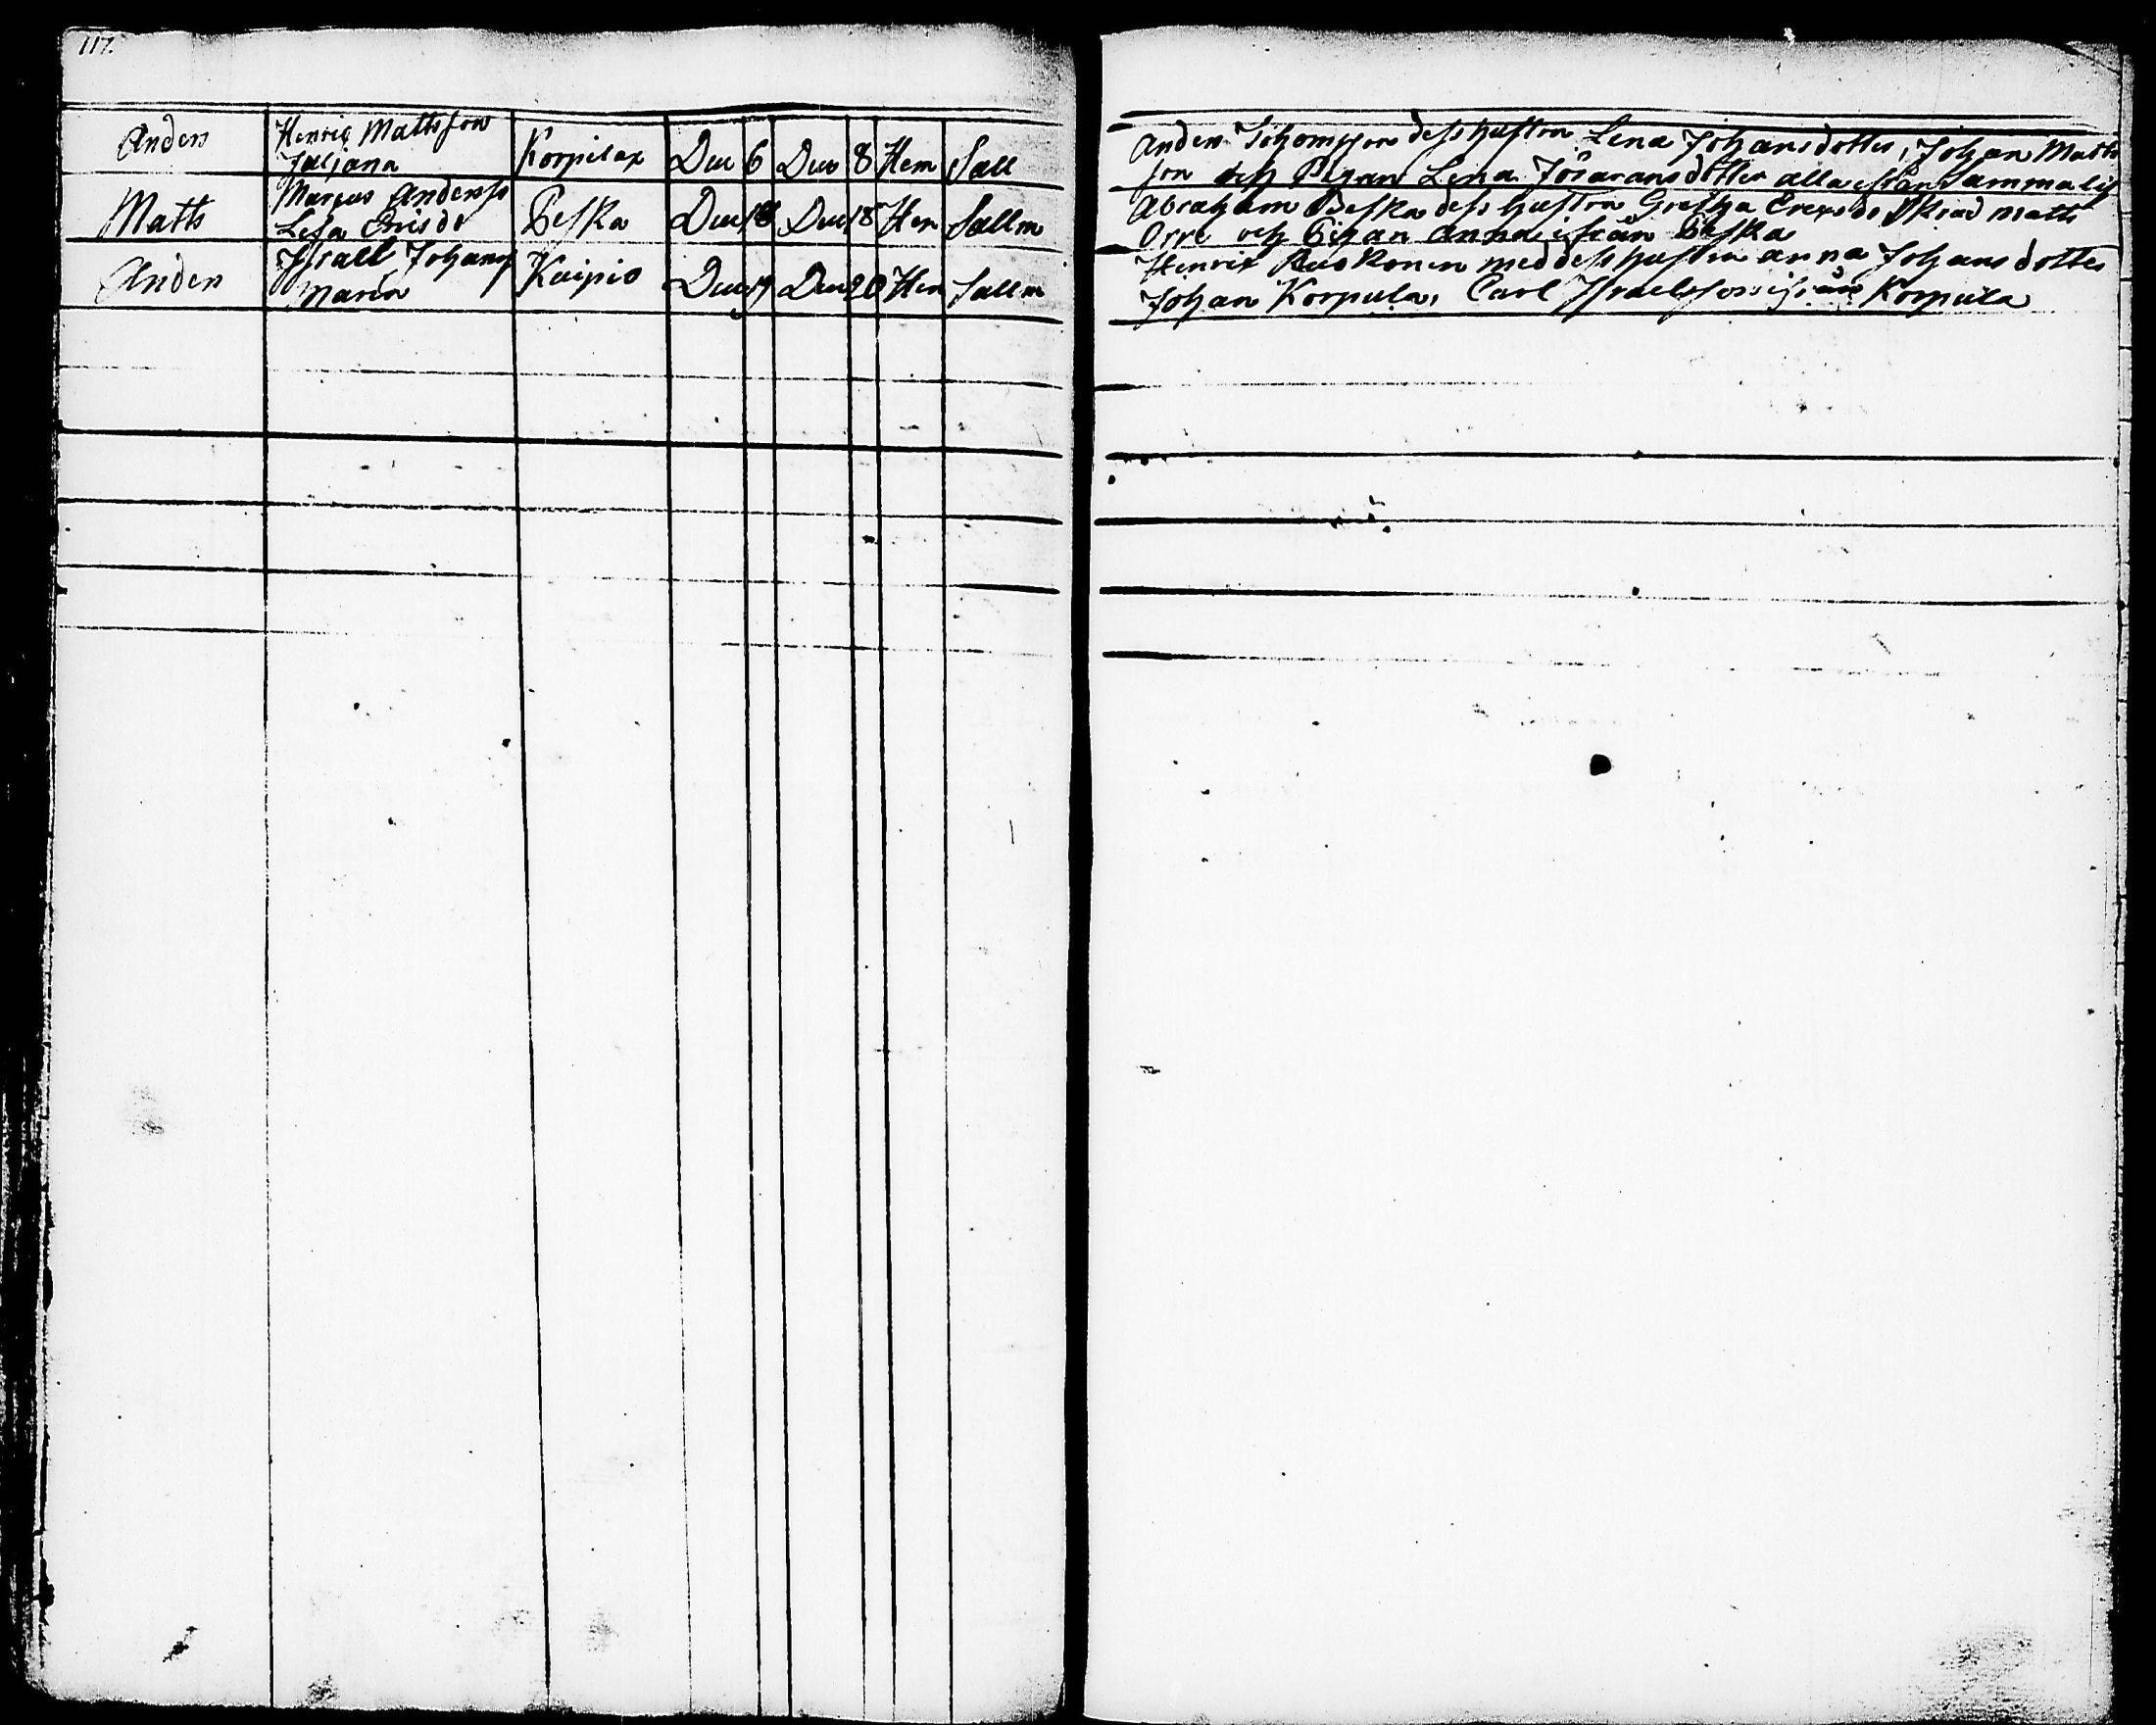 117.
Anders Henric Mattsson Juljana Korpilax Dec 6 Dec 8 Hem Sall
Matts Marcus Anderss Lisa Ericsdr Peska Dec 18 Dec 18 Hem Sallm
Anders Israel Johans Maria Kuipio Dec 19 Dec 20 Hem Sallm
Anders Johansson dess hustru Lena Johansdotter, Johan Matts
son och Pigan Lena Jöransdotter alla ifrån Sammalis
Abraham Peska dess hustru Gretha Erexsdr Skräd Matts
Orre och Pigan Anna ifrån Peska
Henrix Ruskonen med dess hustru Anna Johansdotter
Johan Korpula, Carl Israelsson ifrån Korpula